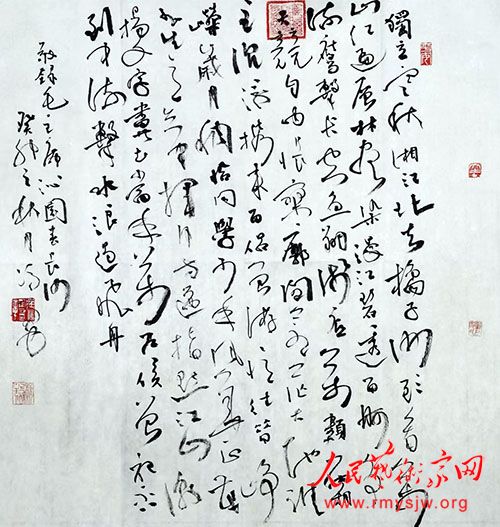 獨立寒秋湘江北去橘子洲頭看萬
山紅遍層林盡染漫江碧透百舸爭
流鷹擊長空魚翔淺底萬類霜
天競自由悵寥廓問蒼茫大地誰
主沉浮攜來百侶曾游憶往昔崢
嶸歲月稠恰同學少年風華正茂
書生意氣揮斥方遒指點江山激
揚文字糞土當年萬戶侯曾記否
到中流擊水浪遏飛舟
敬錄毛主席沁園春長沙
癸之秋月
人民艺术家网
www.rmysjw.org